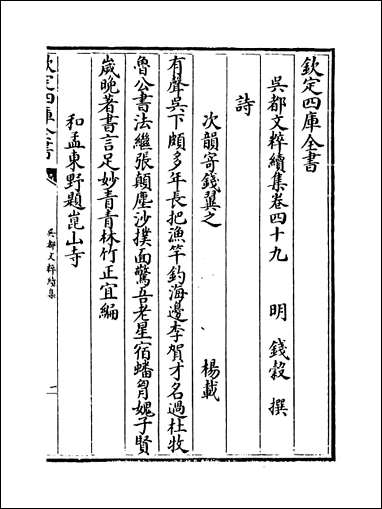 欽定四庫全書
吳都文粹續集卷四十九
明 錢穀 撰
詩
次韻寄錢翼之 楊載
有聲吳下頗多年長把漁竿釣海邊李賀才名過杜牧
魯公書法繼張顛塵沙撲面驚吾老星宿蟠胷媿子賢
嵗晩著書言足妙青青林竹正宜編
和孟東野題崑山寺
欽定四庫全書
吳都文粹續集
一